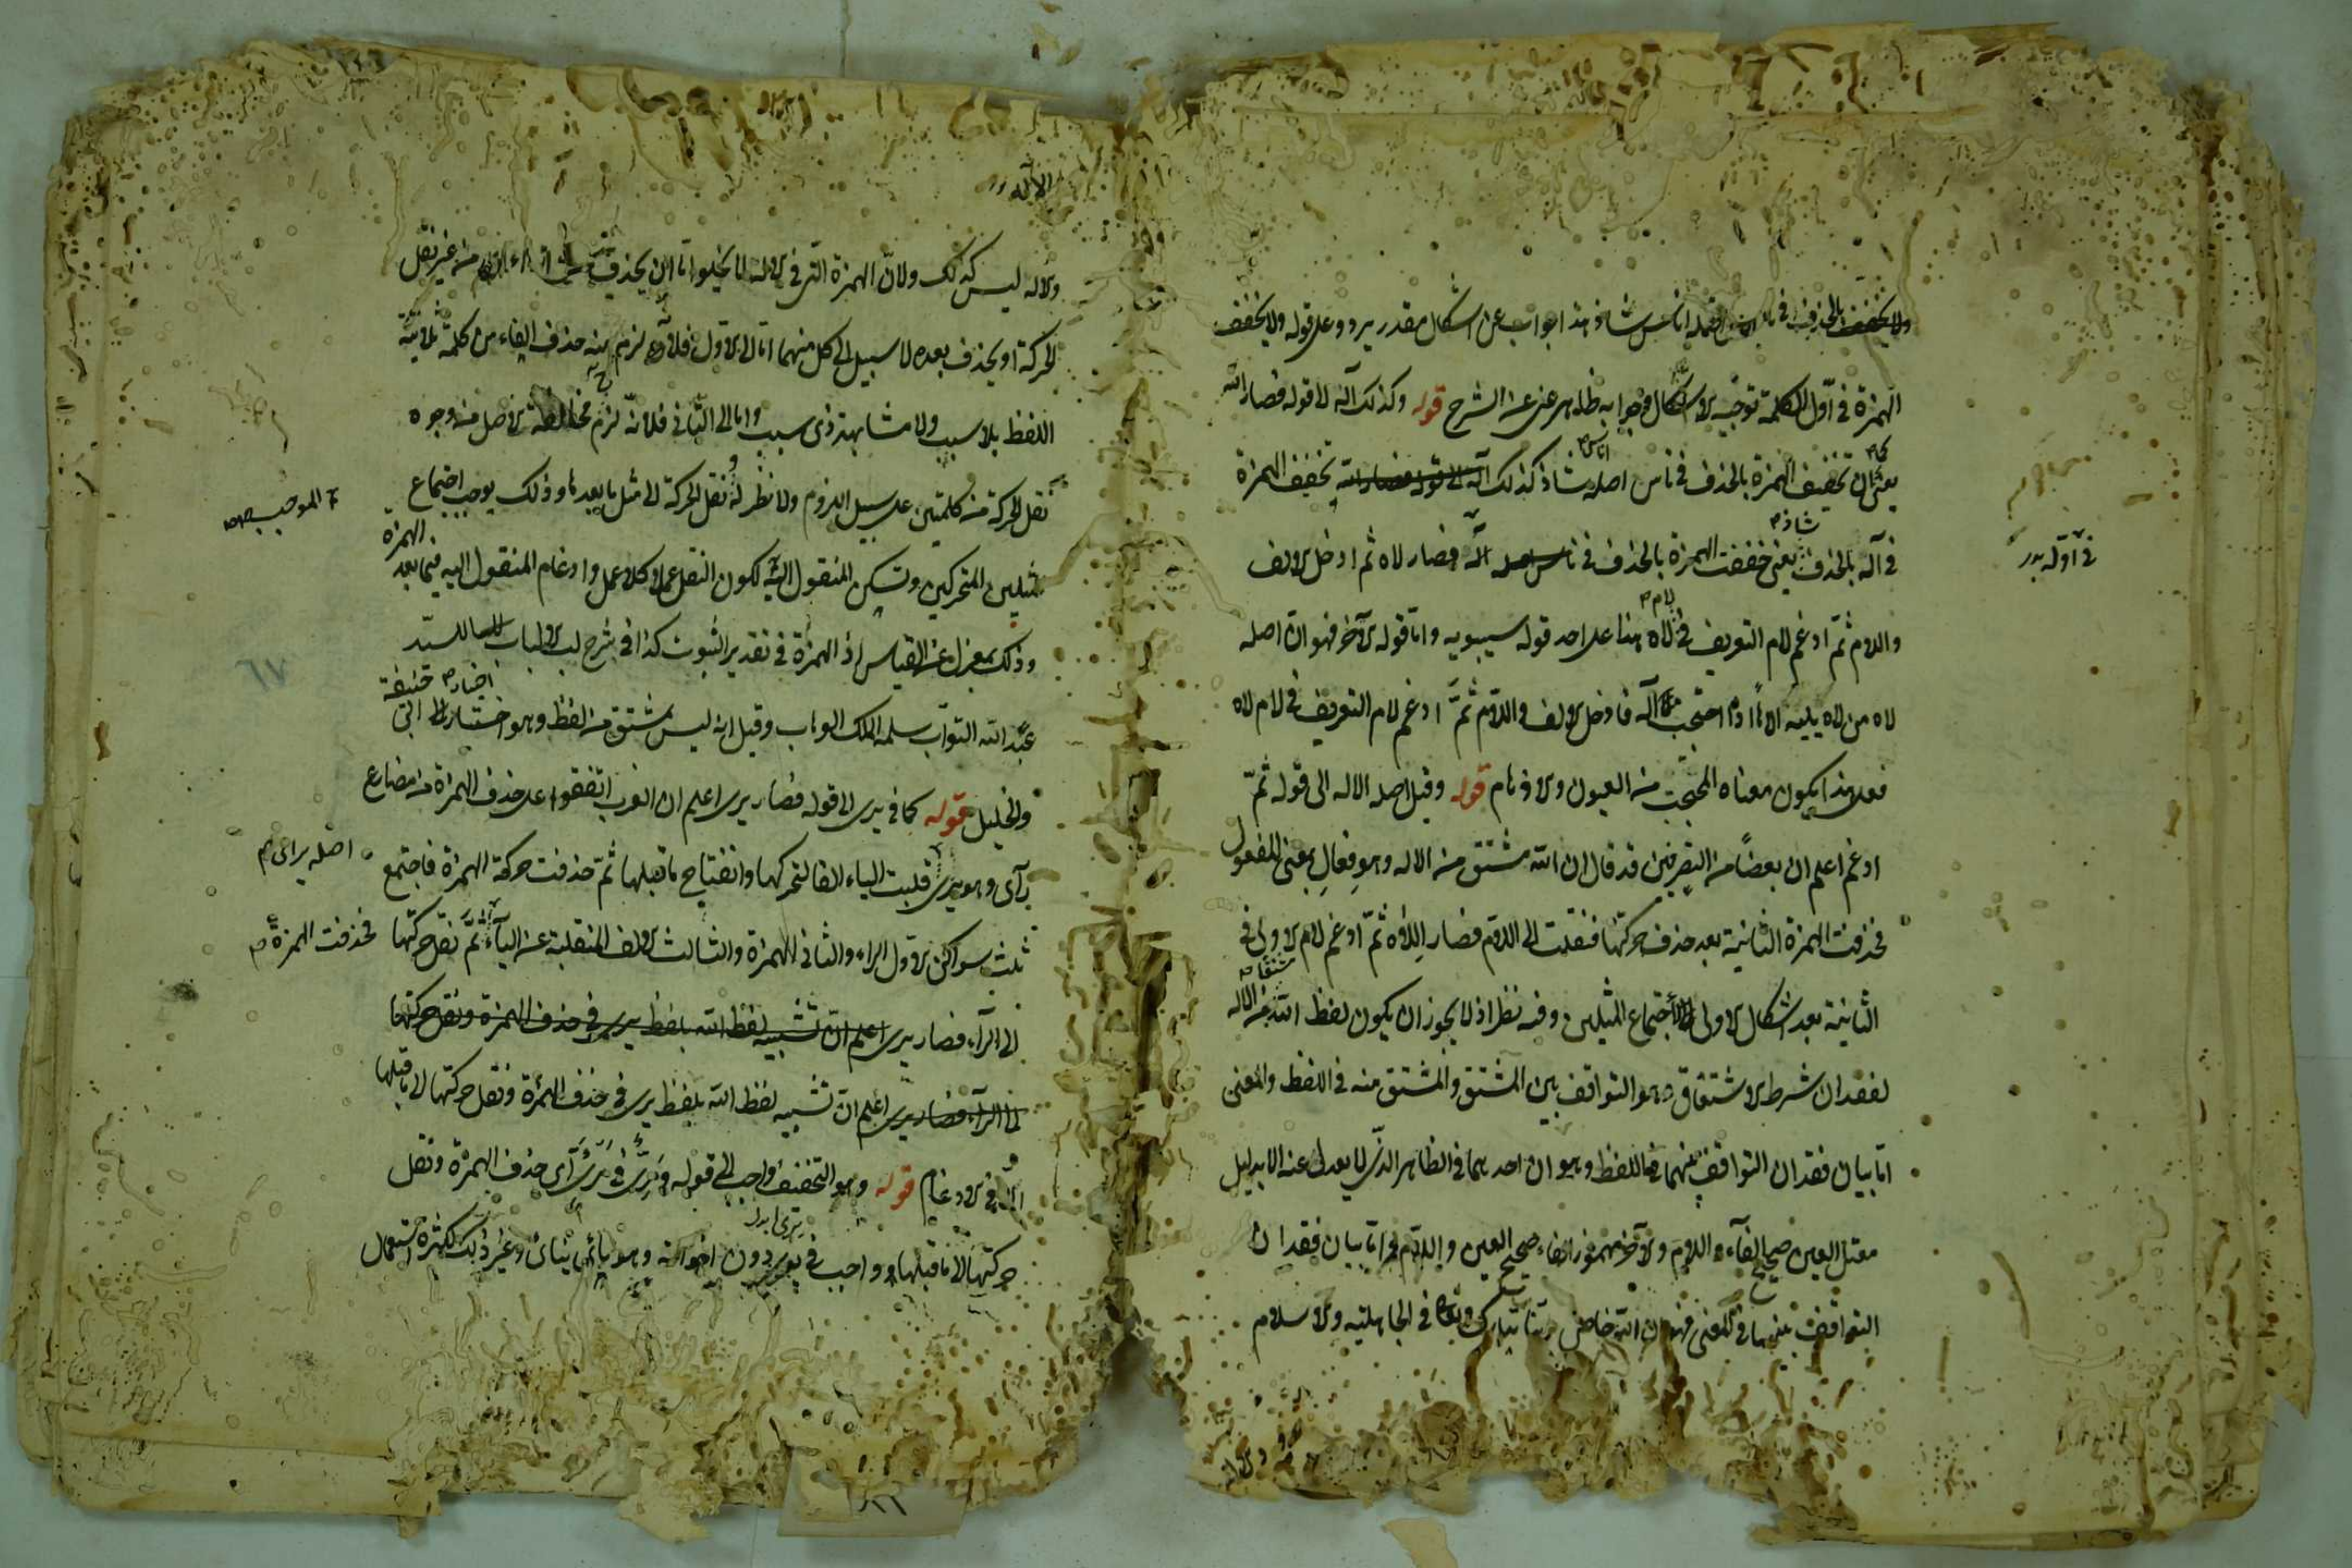 ولا يخفف بالحذف في اصله اناس شاذ هذا جواب عن اشكال مقدر يرد وعلى قوله ولا يخفف
الهمزة في اول الكلمة توجيه الاشكال وجوابه ظاهر عن الشرح قوله وكذلك آله الى قوله فصار الله
يعني ان تخفيف الهمزة بالحذف في ناس اصله شاذ كذلك تخفيف الهمزة
اناس
في آله بالحذف يعني خففت الهمزة بالحذف في ناس اصله آله فصار لاه ثم ادخل الالف
شاذ
في اوله
واللام ثم ادغم لام التعريف في لاه هذا على احد قوله سيبويه واما قوله الآخر فهو ان اصله
لاه من لاه يليه اذا احتجب فادخل الالف واللام ثم ادغم لام التعريف في لام لاه
فعلى هذا يكون معناه المحتجب من العيون والاوهام قوله وقيل اصله الاله الى قوله ثم
ادغم اعلم ان بعضا من التصرفيين قد قال ان الله مشتق من الاله وهو فعال بمعنى المفعول
فحذفت الهمزة الثانية بعد حذف حركتها فنقلت الى اللام فصار اللاه ثم ادغم لام الاولى في
الثانية بعد اشكال الاولى لاجتماع المثلين وفيه نظر اذ لا يجوز ان يكون لفظ الله من الاله
لفقدان شرط الاشتقاق وهو التوافق بين المشتق والمشتق منه في اللفظ والمعنى
اما بيان فقدان التوافق بينهما في اللفظ وهو ان احدهما في الظاهر الذي لا يعدل عنه الا بدليل
معتل العين صحيح الفاء واللام والآخر مهموز الفاء صحيح العين واللام واما بيان فقدان
التوافق بينهما في المعنى فهو ان الله خاص ربنا تبارك وتعالى في الجاهلية والاسلام
الاله
والاله ليس كذلك ولان الهمزة التي في الاله لا يخلو اما ان يحذف من غير نقل
الحركة او يحذف بعده لا سبيل الى كل منهما اما الى الاول فلانه لزم منه حذف الفاء من كلمة ثلاثية
اللفظ بلا سبب ولا مشابهة ذي سبب واما الى الثاني فلانه لزم مخالفة الاصل من وجوه
نقل الحركة من كلمتين على سبيل اللزوم ولا نظر له نقل الحركة الى مثل ما بعدها وذلك يوجب اجتماع
الموجب
مثلين المتحركين وتسكين المنقول اليه لكون النقل عملا كلا عمل وادغام المنقول اليه فيما بعد
الهمزة
وذلك بمعزل عن القياس اذ الهمزة في تقدير الثبوت كذا في شرح لب الالباب للسيد
عبد الله التواب سلمه الملك الوهاب وقيل انه ليس بمشتق من لفظ وهو اختيار ابي
حنيفة
والخليل قوله كما في يرى الى قوله فصار يرى اعلم ان العرب اتفقوا على حذف الهمزة من مضارع
رأى وهو يرى قلبت الياء الفا لتحركها وانفتاح ما قبلها ثم حذفت حركة الهمزة فاجتمع
اصله يرأى
ثلث سواكن الاول الراء والثاني الهمزة والثالث الالف المنقلبة عن الياء ثم نقل حركتها
فحذفت الهمزة
الى الراء فصار يرى اعلم ان تشبيه لفظ الله بلفظ يرى في حذف الهمزة ونقل حركتها
الى الراء فصار يرى اعلم ان تشبيه لفظ الله بلفظ يرى في حذف الهمزة ونقل حركتها الى ما قبلها
لا في الادغام قوله وهو التخفيف واجب الى قوله في يرى اي حذف الهمزة ونقل
حركتها الى ما قبلها واجب في دون اخواته وهو ينأى وغير ذلك لكثرة استعمال
٦٧